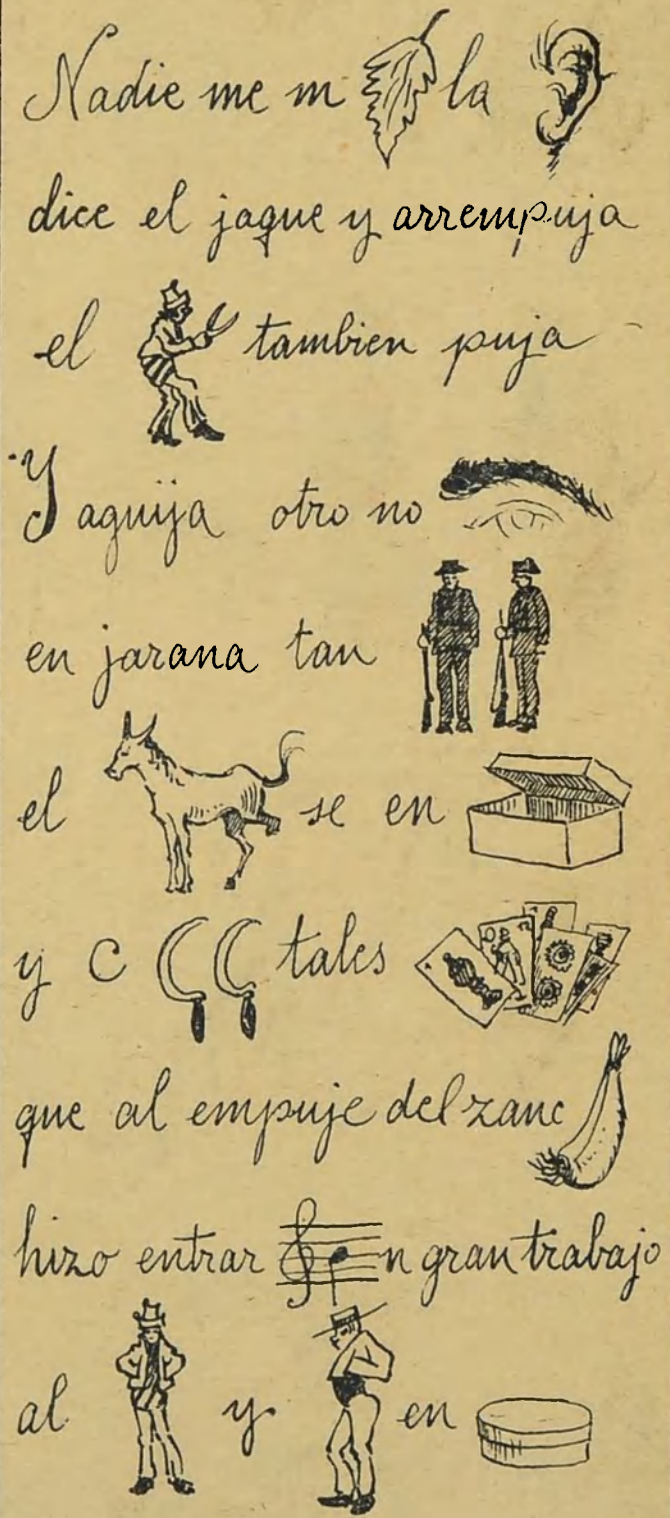 Nadie me m la
dice el jaque y arrempuja
el tambien puja
Y aguija otro no
en jarana tan
el se en
y C tales
que al empuje del zanc
hizo entrar n gran trabajo
al y en